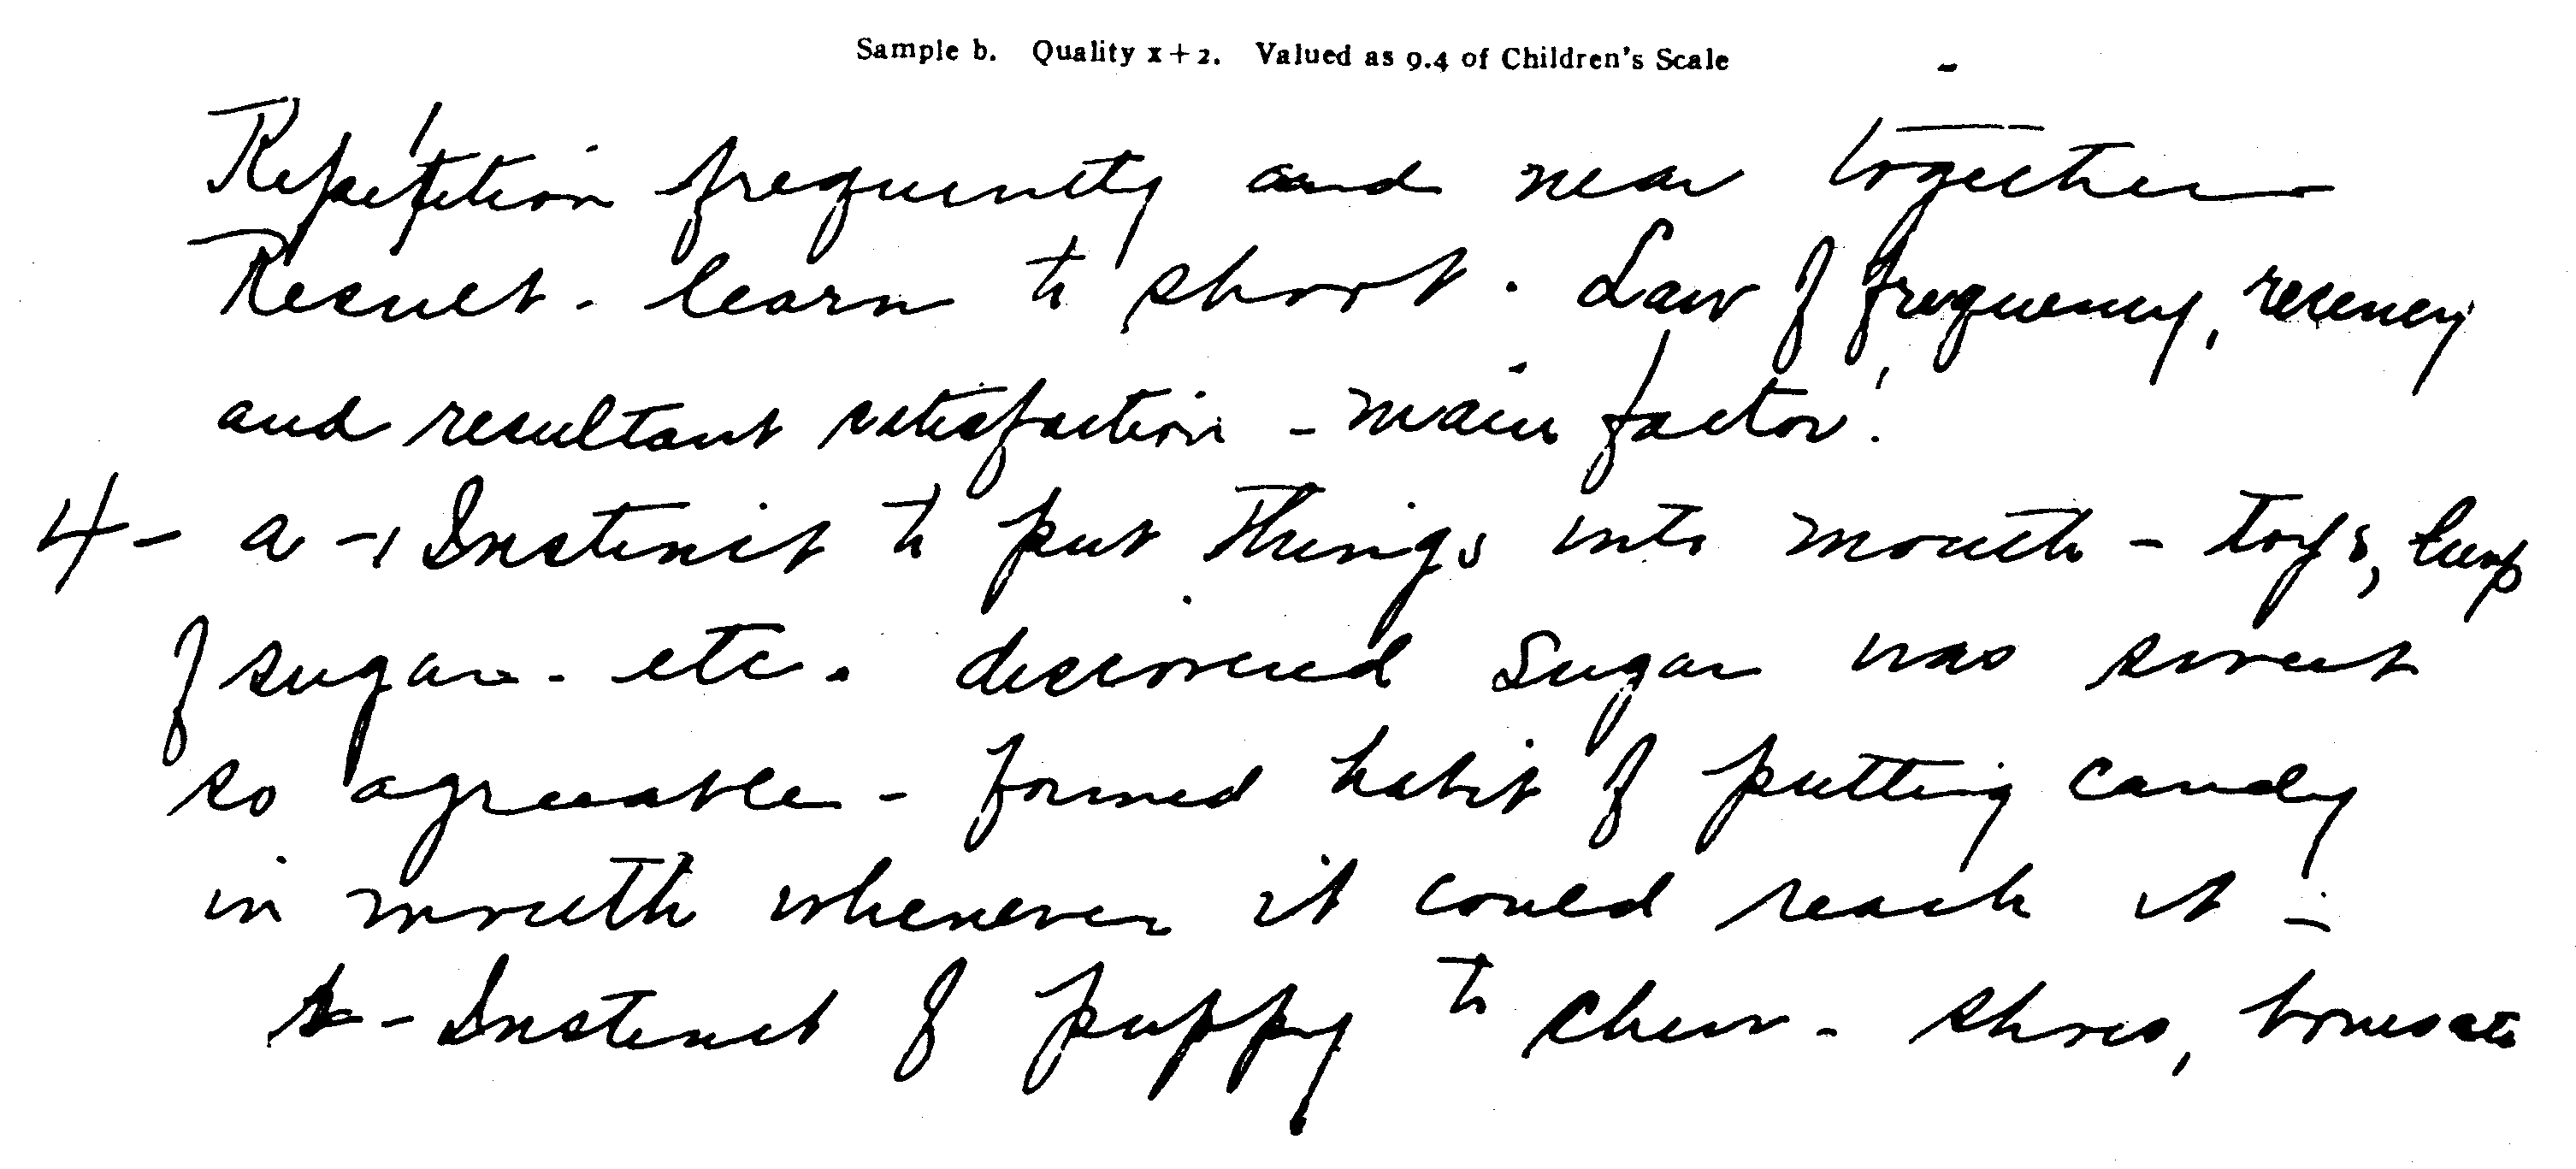 Sample b. Quality x+2. Valued as 9.4 of Children's Scale
Repetition frequently and near together
Result - learn to shoot. Law of frequency, recency
and resultant satisfaction - main factor.
4 - a - Instinct to put things into mouth - toys, lump
of sugar - etc. discovered sugar was sweet
so agreeable - formed habit of putting candy
in mouth whenever it could reach it -
b - Instinct of puppy to chew - shoes, bones etc